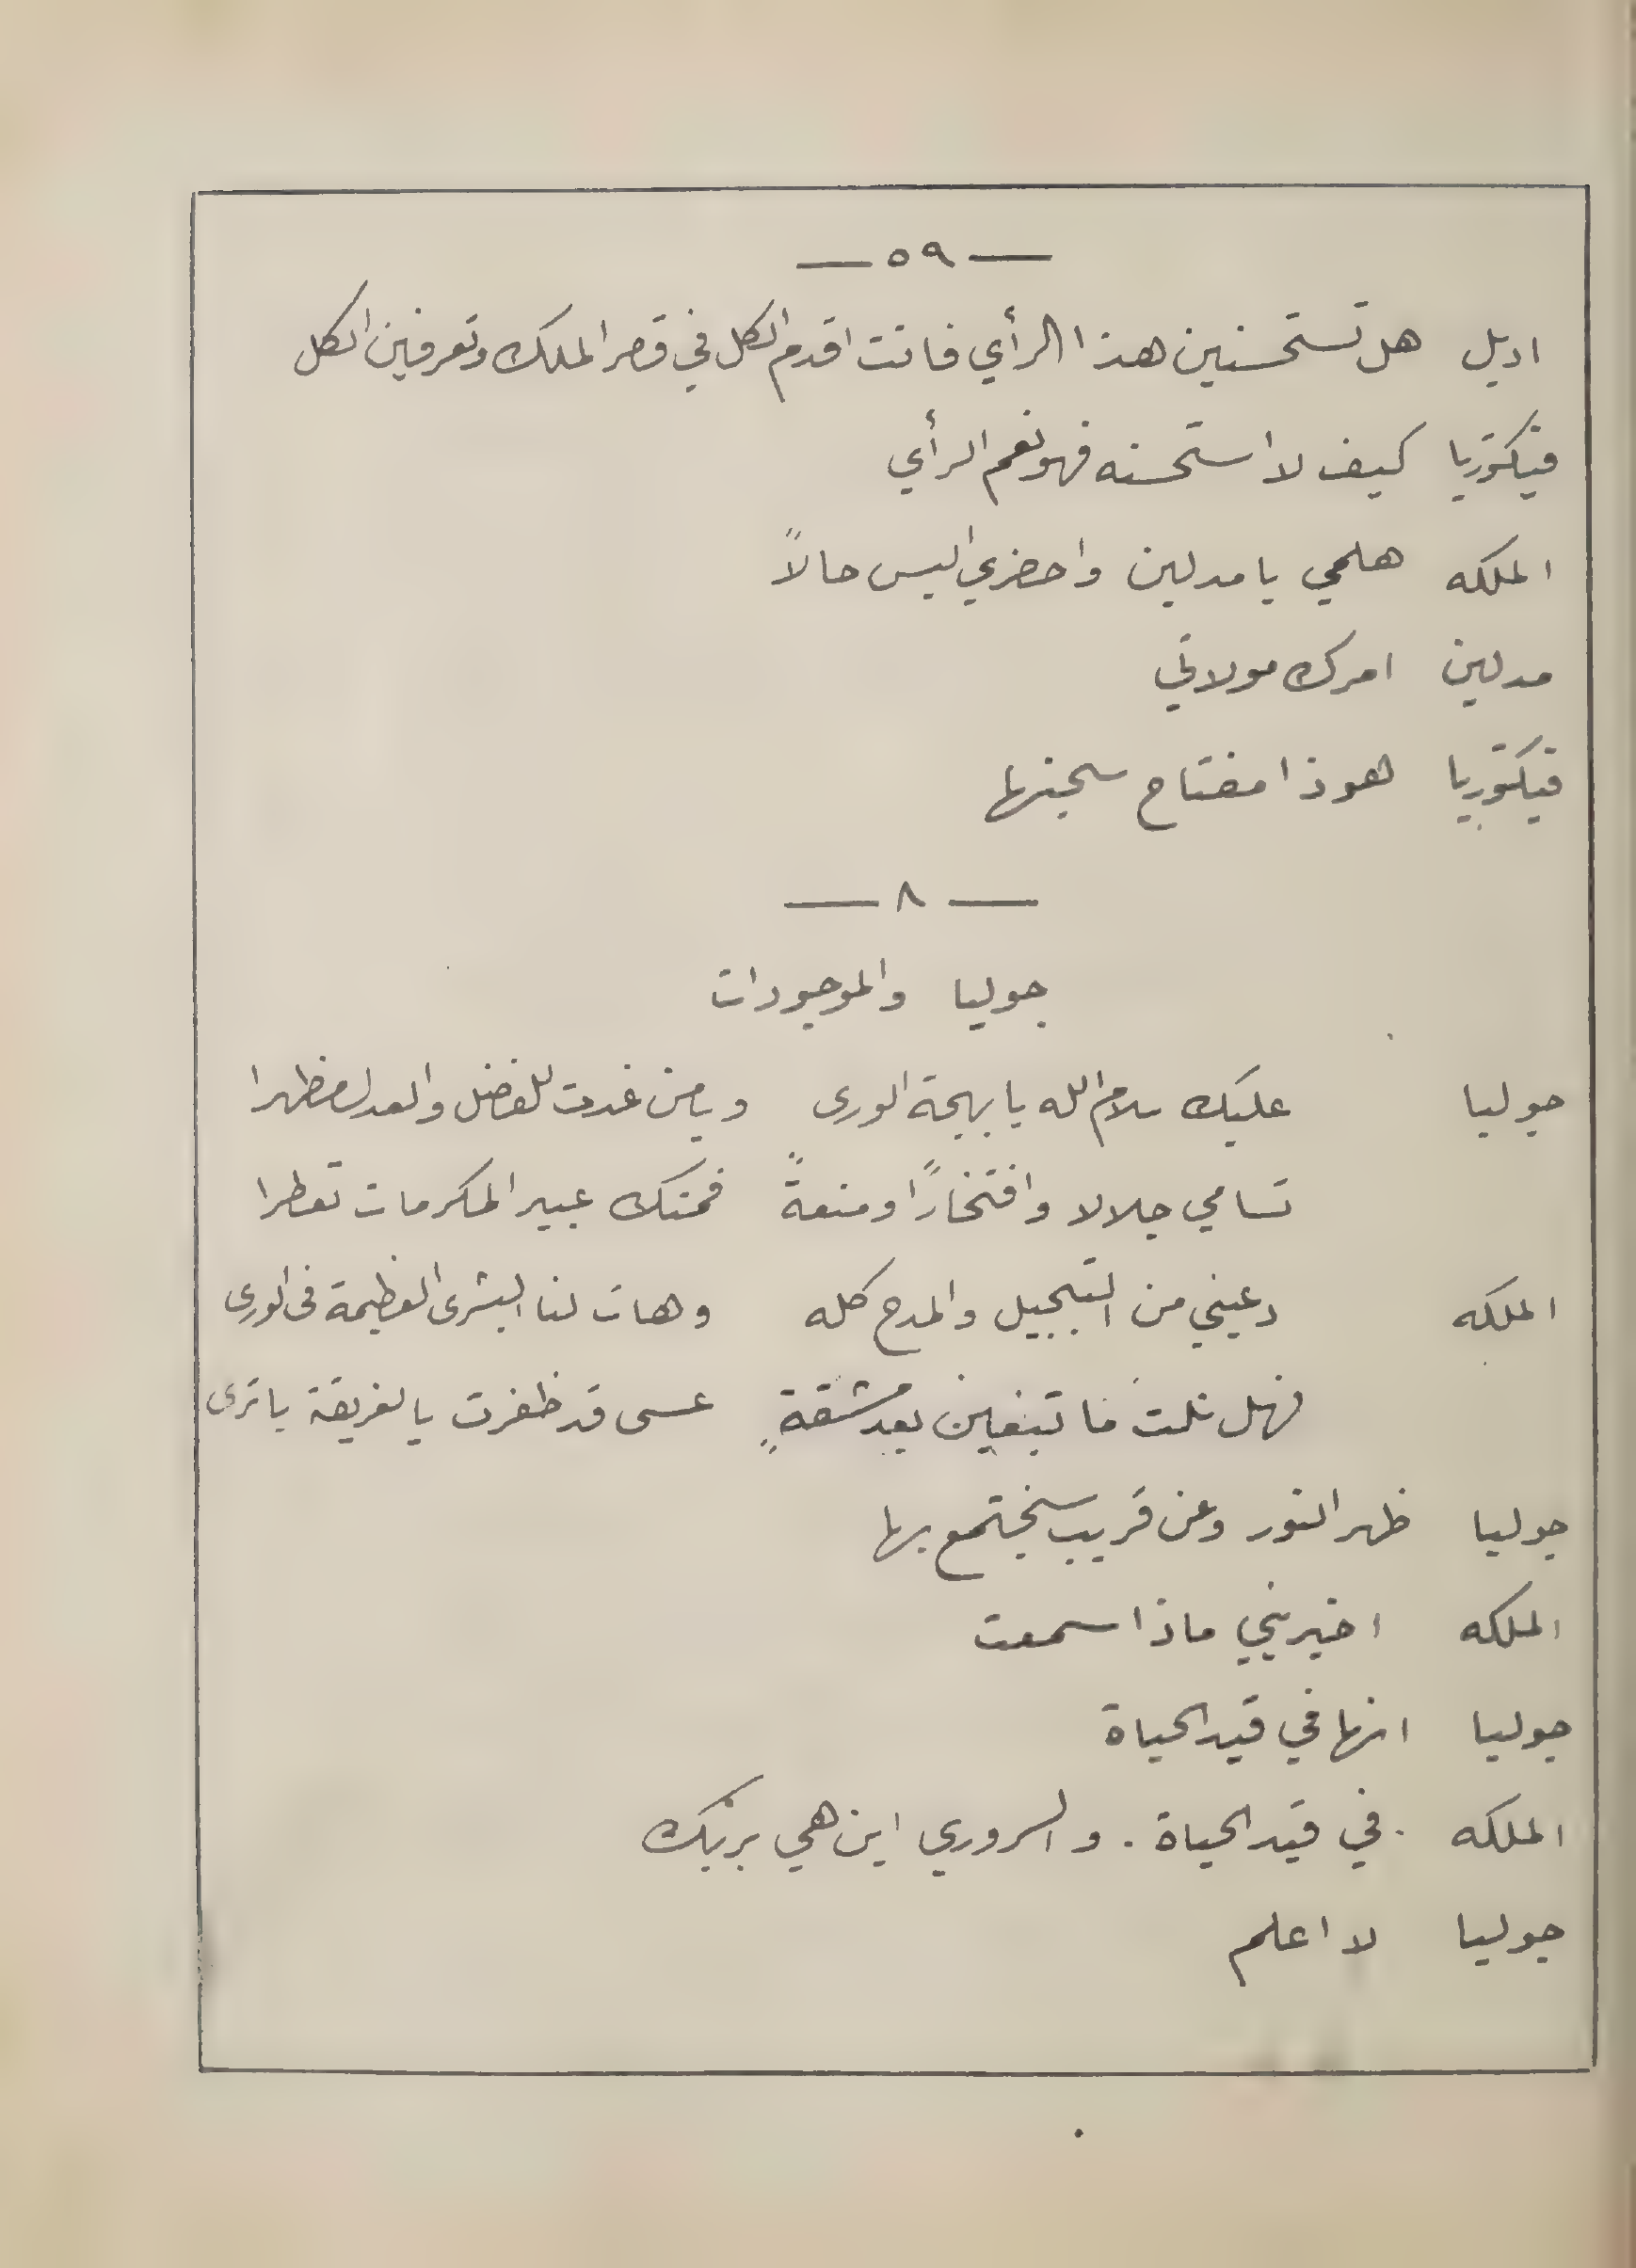 — ٥٩ —
اديل هل تستحسنين هذا الرأي فانت اقدم الكل في قصر الملك وتعرفين الكل
فيكتوريا كيف لا استحسنه فهو نعم الرأي
الملكه هلمي يا مدلين واحضري اليس حالاً
مدلين امرك مولاتي
فيكتوريا هوذا مفتاح سجنها
— ٨ —
جوليا والموجودات
جوليا عليك سلام الله يا بهجة الورى ويا من غدت للفضل والعدل مظهرا
تسامي جلالا وافتخارًا ومنعةً فمنك عبير المكرمات تعطرا
الملكه دعيني من التبجيل والمدح كله وهات لنا البشرى العظيمة في الورى
فهل نلت ما تبغين بعد مشقةٍ عسى قد ظفرت بالغريقة يا ترى
جوليا ظهر النور وعن قريب سنجتمع بها
الملكه اخبريني ماذا سمعت
جوليا انها في قيد الحياة
الملكه . في قيد الحياة . وا سروري اين هي بربك
جوليا لا اعلم